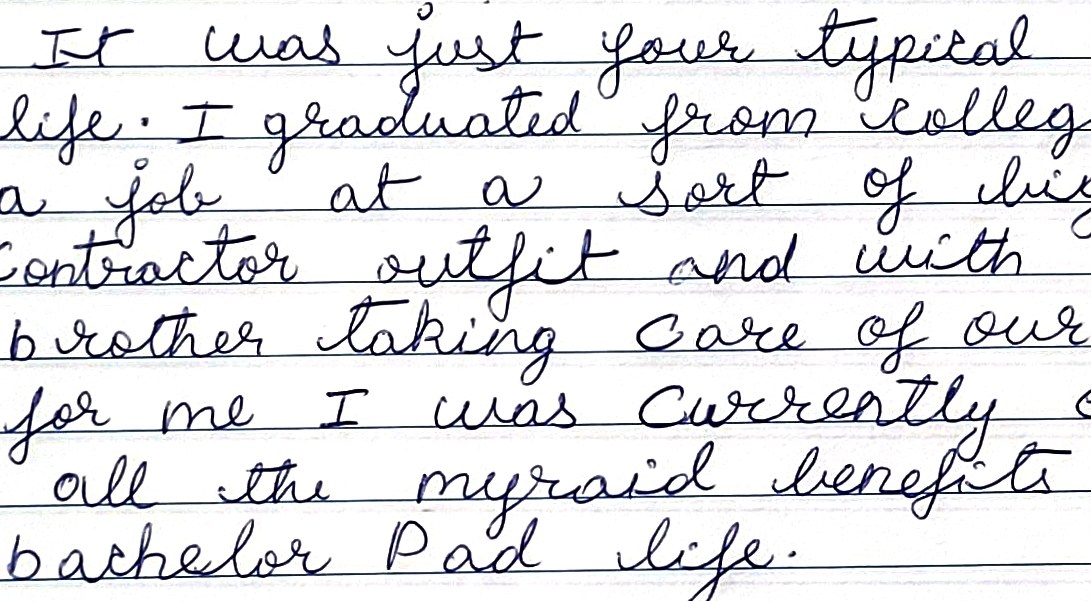 It was just your typical
life. I graduated from colleg
a job at a sort of big
contractor outfit and with
brother taking care of our
for me I was currently
all the myraid benefits
bachelor Pad life.